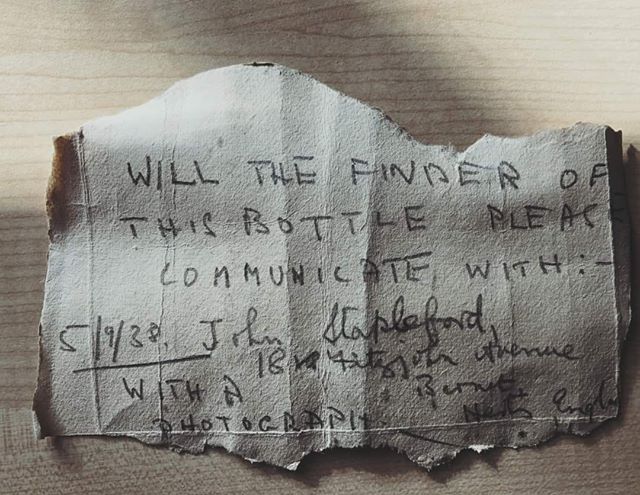 WILL THE FINDER OF
THIS BOTTLE PLEASE
COMMUNICATE WITH:-
5/9/38. John Stapleford,
18 Fitzjohn Avenue
WITH A Barnet
PHOTOGRAPH. Herts Engl